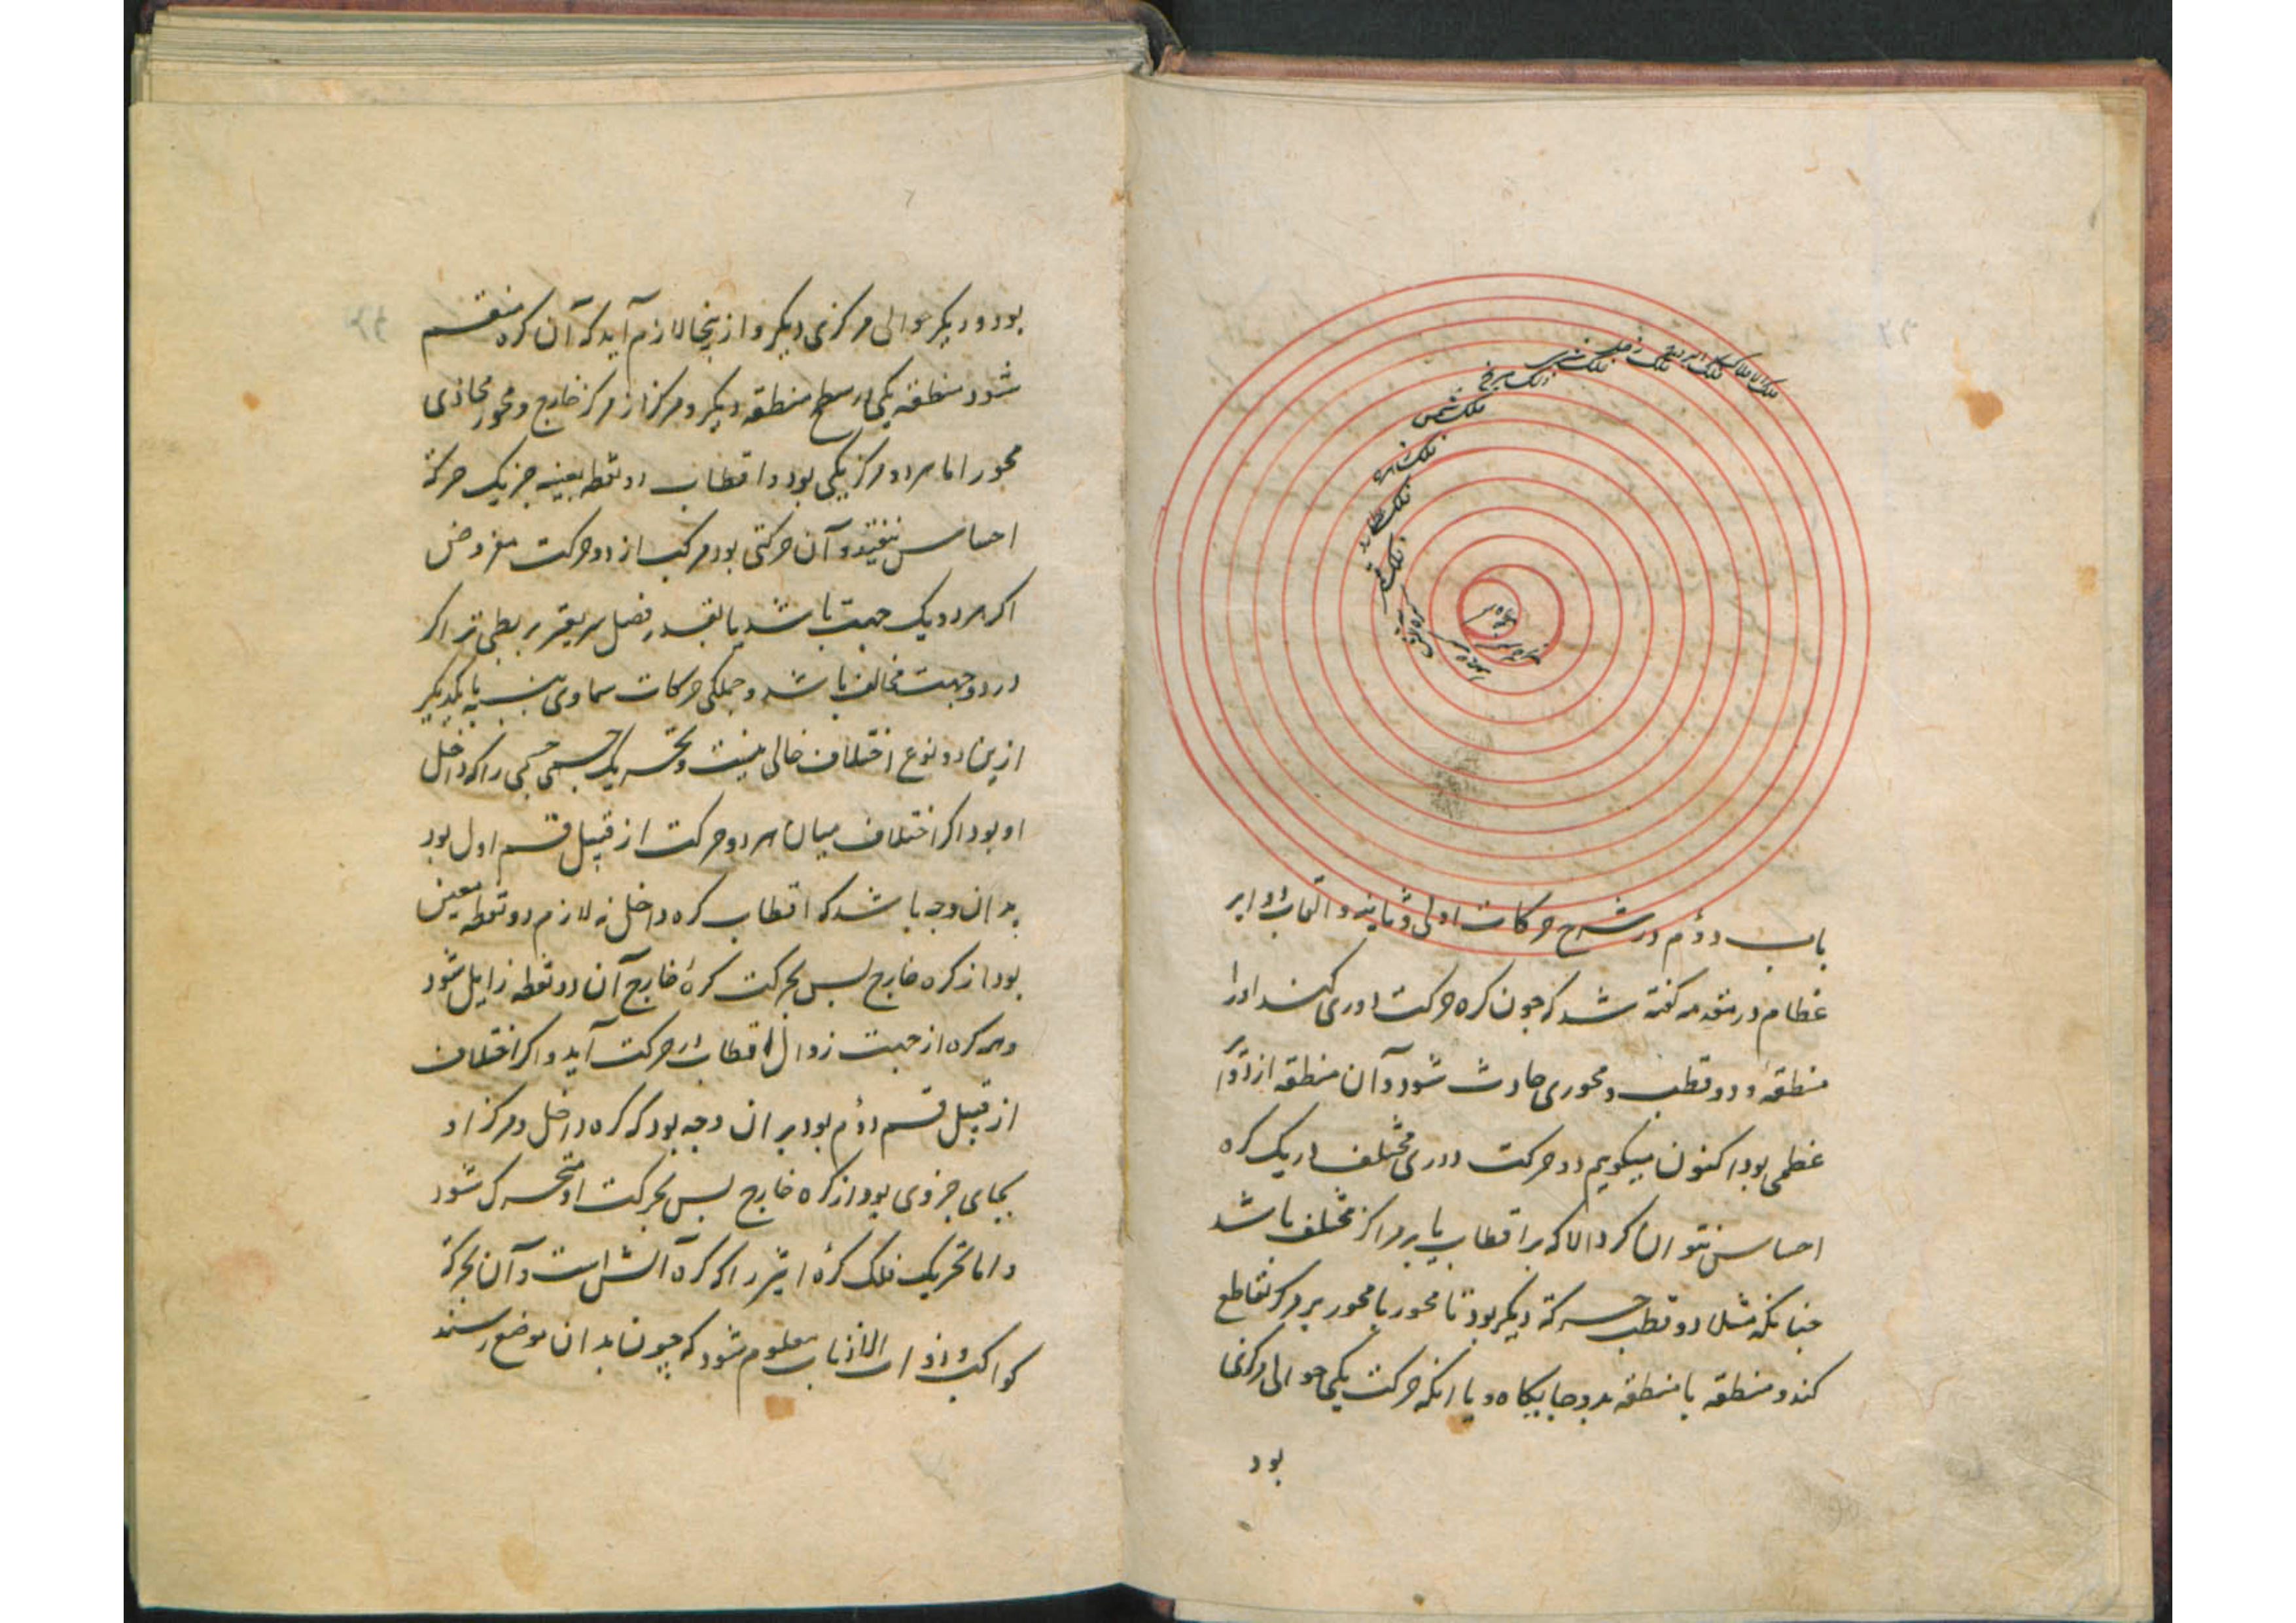 فلک الافلاک
فلک البروج
فلک زحل
فلک مشتری
فلک مریخ
فلک شمس
فلک زهره
فلک عطارد
فلک قمر
کره آتش
کره هوا
باب دوم در شرح حرکات اولی و ثانیه و القاب دوایر
عظام در مقدمه کفته شد که جون کره حرکت دوری کند او را
منطقهٔ و دو قطب و محوری حادث شود و آن منطقه از دوایر
عظمی بود اکنون میکویم دو حرکت دوری مختلف از یک کره
احساس نتوان کرد الا که بر اقطاب یا بر مراکز مختلف باشد
جنانکه مثلا دو قطب حرکة دیکر بود تا محور با محور بر مرکز تقاطع
کند و منطقه با منطقه بدو جایکاه و یا انکه حرکت یکی حوالی مرکزی
بود
بود و دیکر حوالی مرکزی دیکر و از ینجا لازم آید که آن کره منقسم
شود منطقه یکی از سطح منطقه دیکر و مرکز از مرکز خارج و محور محاذی
محور اما هر دو مرکز یکی بود و اقطاب دو نقطه بعینه جز یک حرکة
احساس نیفتد و آن حرکتی بود مرکب از دو حرکت مفروض
اکر هر دو یک جهت باشد یا بقدر فضل سریعتر بر بطی تر اکر
در دو جهت مخالف باشد و جملکی حرکات سماوی بنسبت با یکدیکر
ازین دو نوع اختلاف خالی نیست و تحریک جسمی جسمی را که داخل
او بود اکر اختلاف میان هر دو حرکت از قبیل قسم اول بود
بدان وجه باشد که اقطاب کره داخل نه لازم دو نقطه معین
بود از کره خارج بس بحرکت کرهٔ خارج آن دو نقطه زایل شود
و همه کره از جهت زوال اقطاب در حرکت آید و اکر اختلاف
از قبیل قسم دوم بود بر ان وجه بود که کره داخل و مرکز او
بجای جزوی بود از کره خارج بس بحرکت او متحرک شود
و اما تحریک فلک کرهٔ اثیر را که کره آتش است و آن بحرکة
کواکب ذوات الاذناب معلوم شود که جون بدان موضع رسند